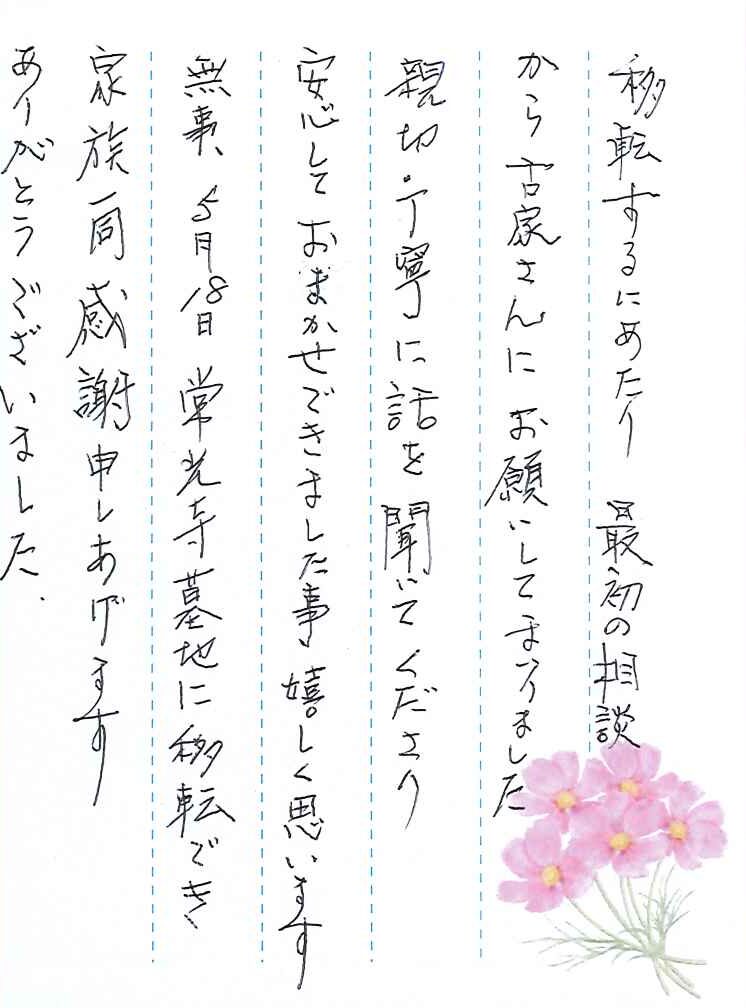 移転するにあたり 最初の相談
から古家さんに お願いしてまいりました
親切・丁寧に話を聞いてくださり
安心しておまかせできました事 嬉しく思います
無事、5月18日 常光寺墓地に移転でき
家族一同感謝申しあげます
ありがとうございました.